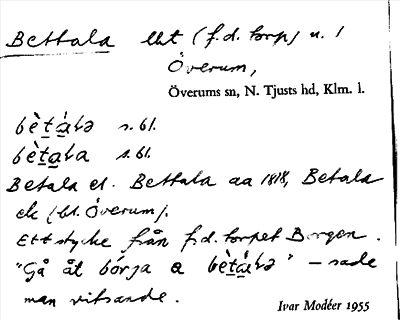 Bettala lht (f.d. torp) u. /
Överum,
Överums sn, N. Tjusts hd, Klm. l.
bètála s. bl.
bètala s. bl.
Betala el. Bettala aa 1818, Betala
ek (bl. Överum).
Ett stycke från f.d. torpet Borgen.
"Gå åt bórja a bètála" – sade
man vitsande.
Ivar Modéer 1955